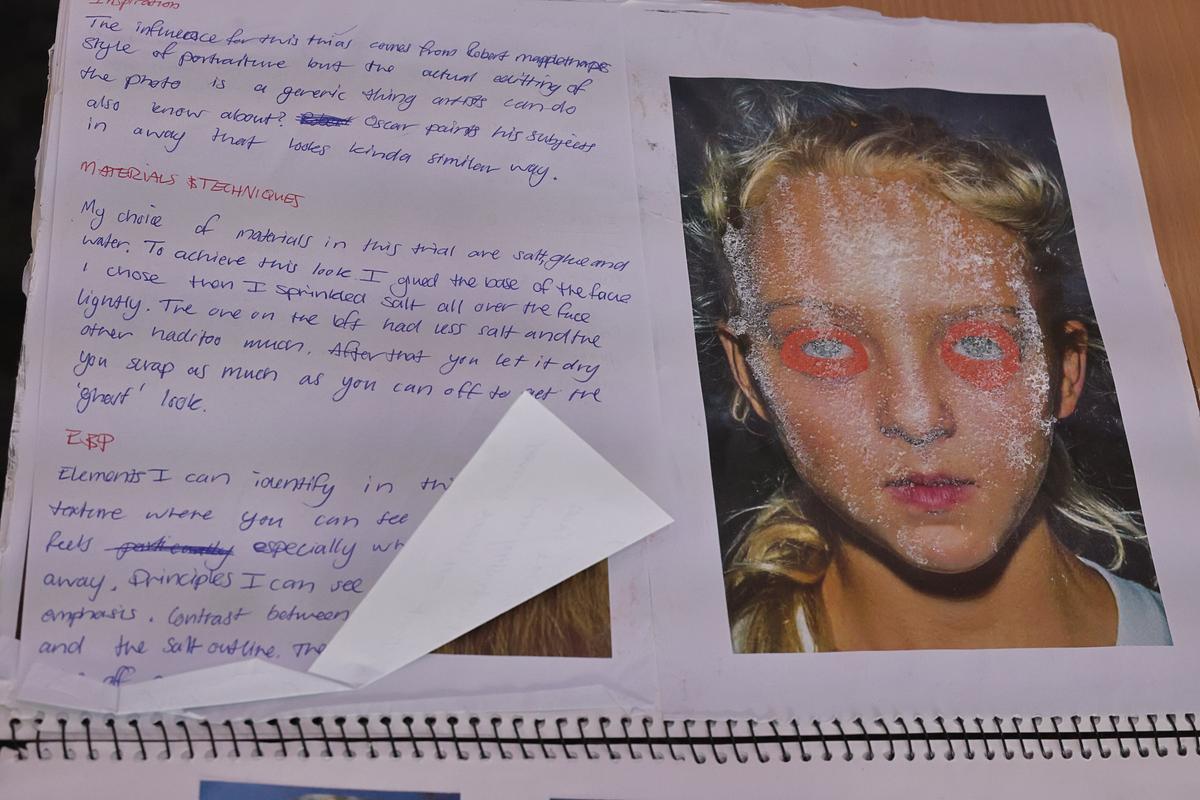 Inspiration
The influence for this trial comes from Robert mapplethorpes
style of portraiture but the actual editting of
the photo is a generic thing artists can do
also know about? Oscar paints his subjects
in away that looks kinda similar way.
MATERIALS & TECHNIQUES
My choice of materials in this trial are salt, glue and
water. To achieve this look I glued the base of the face
I chose then I sprinkled salt all over the face
lightly. The one on the left had less salt and the
other had too much. After that you let it dry
you scrap as much as you can off to get the
'ghost' look.
EBP
Elements I can identify in
texture where you can see
feels especially
away. Principles I can see
emphasis. Contrast between
and the salt outline. The
off